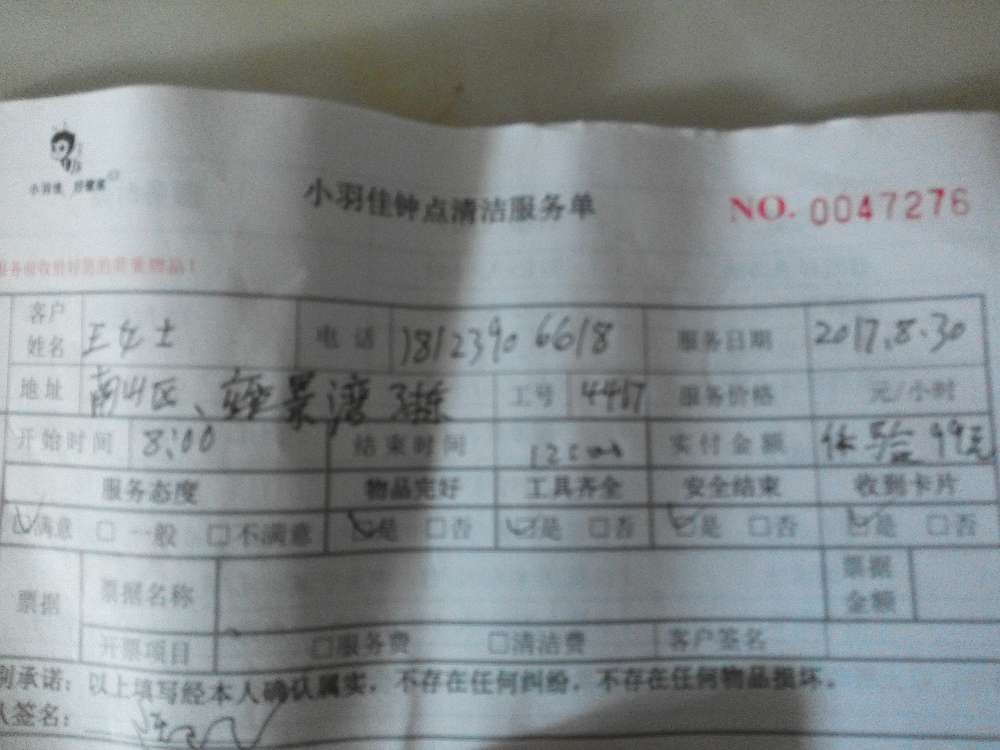 小羽佳 好管家
小羽佳钟点清洁服务单
NO. 0047276
客户姓名 王女士 电话 18123906618 服务日期 2017.8.30
地址 南山区、 景湾 工号 4417 服务价格 元/小时
开始时间 8:00 结束时间 12:00 实付金额 体验99元
服务态度 物品完好 工具齐全 安全结束 收到卡片
满意 一般 不满意 是 否 是 否 是 否 是 否
票据 票据名称 票据金额
开票项目 服务费 清洁费 客户签名
承诺：以上填写经本人确认属实，不存在任何纠纷，不存在任何物品损坏。
签名：